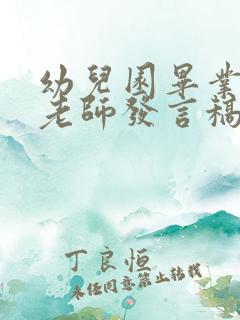 幼兒園畢業
老師發言稿
丁良恒
未經同意禁止轉載